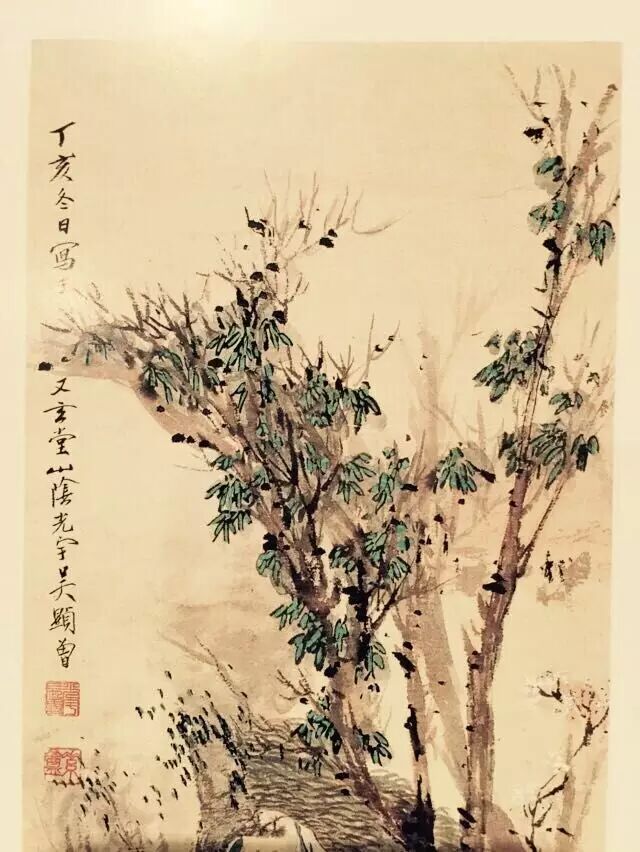 丁亥冬日寫于
又玄堂山陰光宇吳顯曾